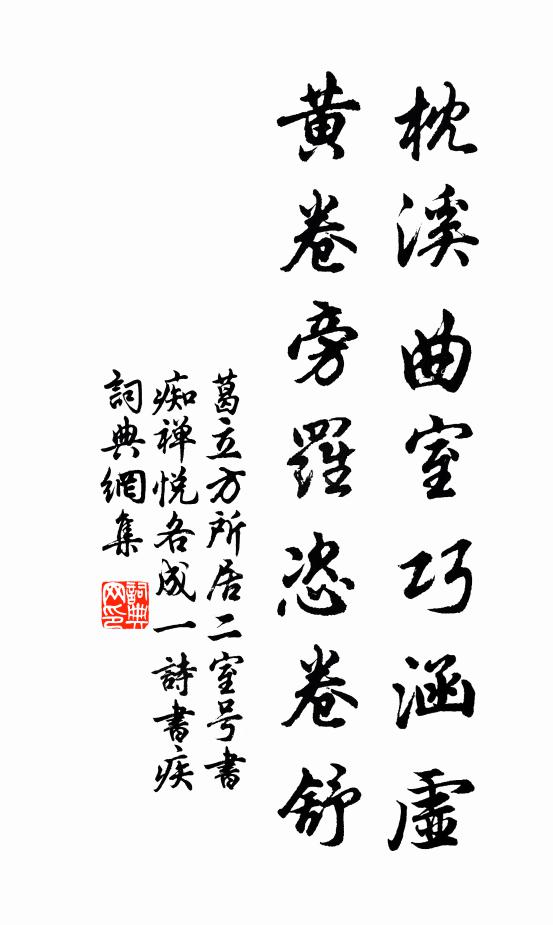 枕溪曲室巧涵虛
黃卷旁羅恣卷舒
葛立方所居二室号書
痴禅悦各成一詩書疾
詞典網集
詞典
网印